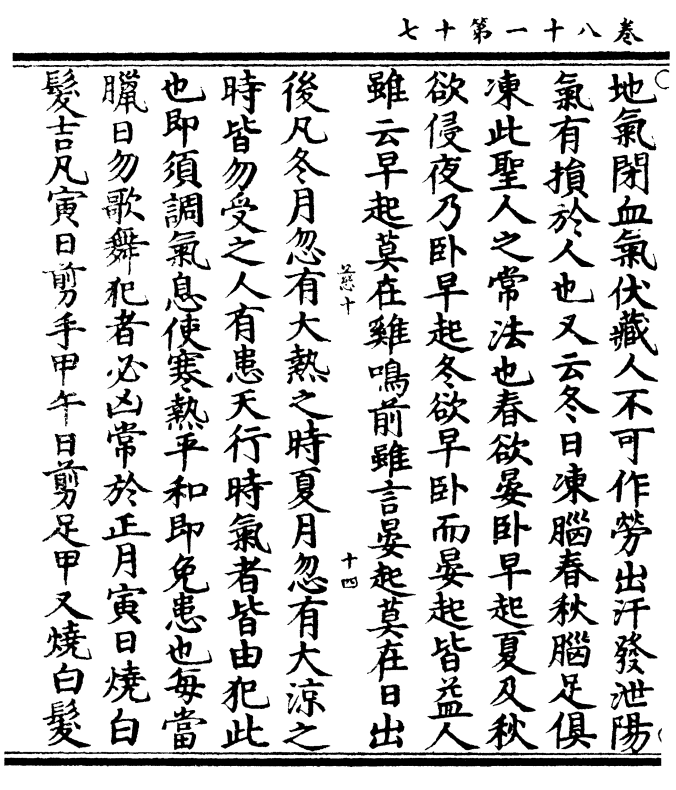 卷八十一第十七
地氣閉血氣伏藏人不可作勞出汗發泄陽
氣有損於人也又云冬日凍腦春秋腦足俱
凍此聖人之常法也春欲晏卧早起夏及秋
欲侵夜乃卧早起冬欲早卧而晏起皆益人
雖云早起莫在雞鳴前雖言晏起莫在日出
十
十四
後凡冬月忽有大熱之時夏月忽有大涼之
時皆勿受之人有患天行時氣者皆由犯此
也即須調氣息使寒熱平和即免患也每當
臘日勿歌舞犯者必凶常於正月寅日燒白
髮吉凡寅日剪手甲午日剪足甲又燒白髮